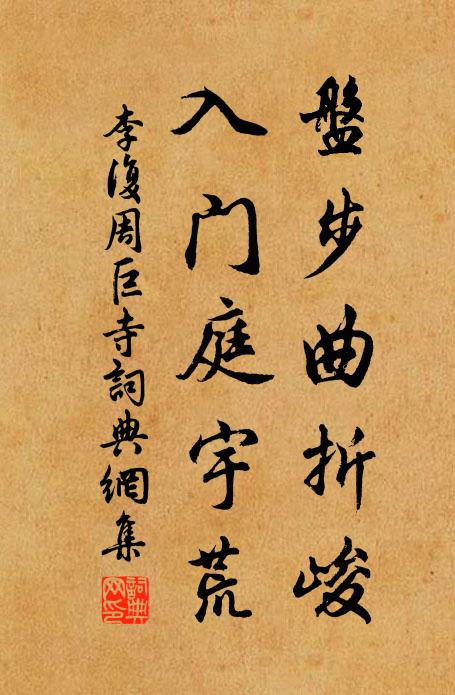 盤步曲折峻
入門庭宇荒
李復周巨寺詞典網集
詞典网印